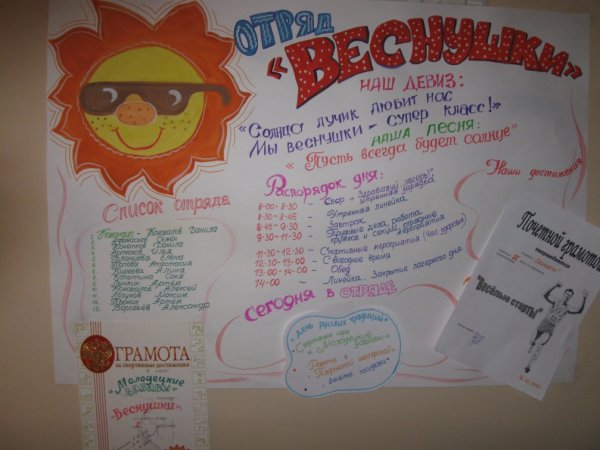 ОТРЯД
«ВЕСНУШКИ»
НАШ ДЕВИЗ:
«Солнца лучик любит нас
Мы веснушки - супер класс!»
НАША ПЕСНЯ:
« Пусть всегда будет солнце"
Распорядок дня:
8-00 - 8-30 - Сбор "Здравствуй лагерь!" Утренняя зарядка
8-30 - 8-45 - Утренняя линейка
8-45 - 9-30 - Завтрак
9-30 - 11-30 - Трудовые дела, работа кружков и секций, отрядные мероприятия.
11-30 - 12-30 - Спортивные мероприятия (Час здоровья)
12-30 - 13-00 - Свободное время
13-00 - 14-00 - Обед
14-00 - Линейка. Закрытие лагерного дня.
Сегодня в ОТРЯДЕ
Список отряда
Коновалов Данила
Семён
Данила
Анастасия
Киреева Алина
Соня
Артём
Коновалов Алексей
Максим
Артём
Воробьёв Александр
Наши достижения
День русских традиций
Спортивные игры
"Молодецкие забавы"
Работа в
весёлые
ГРАМОТА
за спортивные достижения
"Молодецкие забавы"
"Веснушки"
I
Почетной грамотой
награждается
II
"Весёлые старты"